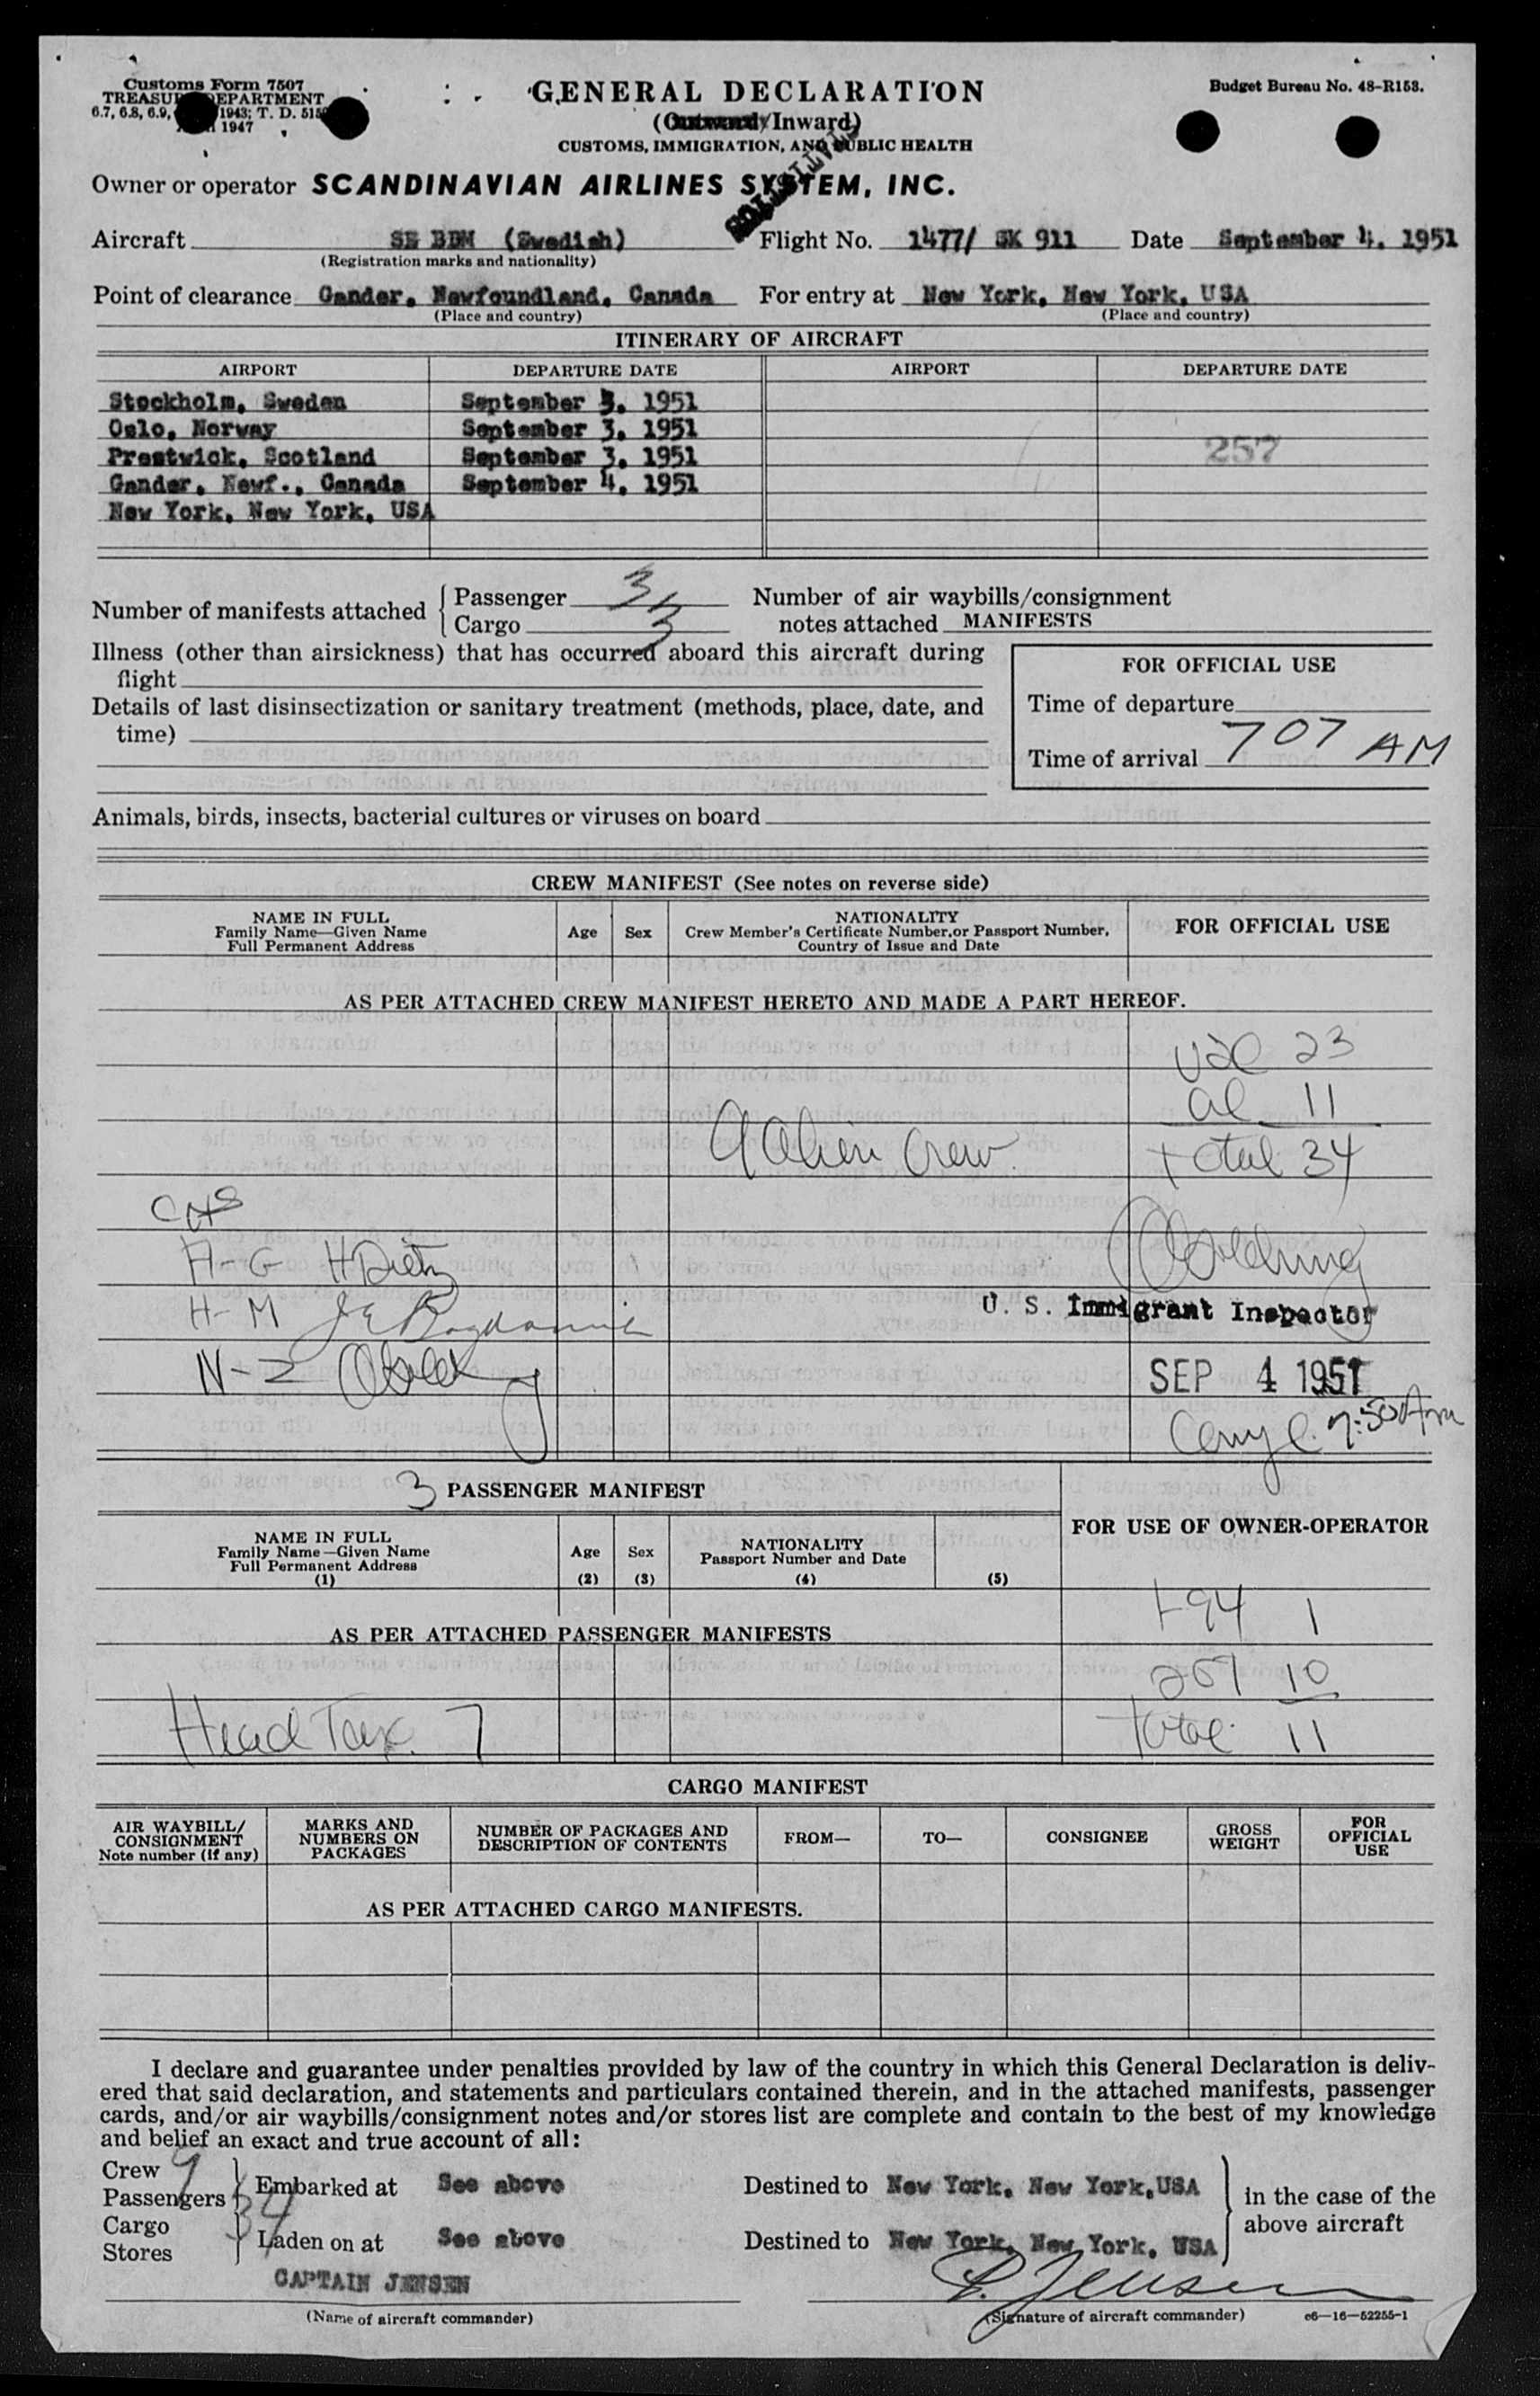 Customs Form 7507
TREASU DEPARTMENT
6.7, 6.8, 6.9, 1943; T. D. 515
1947
GENERAL DECLARATION
(Outward/Inward)
CUSTOMS, IMMIGRATION, AND PUBLIC HEALTH
Budget Bureau No. 48-R153.
Owner or operator SCANDINAVIAN AIRLINES SYSTEM, INC.
Aircraft SE BDM (Swedish) Flight No. 1477/ SK 911 Date September 4, 1951
(Registration marks and nationality)
Point of clearance Gander, Newfoundland, Canada For entry at New York, New York, USA
(Place and country) (Place and country)
ITINERARY OF AIRCRAFT
AIRPORT DEPARTURE DATE AIRPORT DEPARTURE DATE
Stockholm, Sweden September 3, 1951
Oslo, Norway September 3, 1951
Prestwick, Scotland September 3, 1951 257
Gander, Newf., Canada September 4, 1951
New York, New York, USA
Number of manifests attached { Passenger 3 Number of air waybills/consignment
Cargo 3 notes attached MANIFESTS
Illness (other than airsickness) that has occurred aboard this aircraft during
flight
FOR OFFICIAL USE
Details of last disinsectization or sanitary treatment (methods, place, date, and
time)
Time of departure
Time of arrival 707 AM
Animals, birds, insects, bacterial cultures or viruses on board
CREW MANIFEST (See notes on reverse side)
NAME IN FULL
Family Name—Given Name
Full Permanent Address
Age Sex
NATIONALITY
Crew Member's Certificate Number, or Passport Number,
Country of Issue and Date
FOR OFFICIAL USE
AS PER ATTACHED CREW MANIFEST HERETO AND MADE A PART HEREOF.
23
al 11
9 Alien Crew
total 34
A-G H Dietz
H-M
U. S. Immigrant Inspector
N-Z
SEP 4 1951
7:50 Am
3 PASSENGER MANIFEST
FOR USE OF OWNER-OPERATOR
NAME IN FULL
Family Name—Given Name
Full Permanent Address
(1)
Age
(2)
Sex
(3)
NATIONALITY
Passport Number and Date
(4)
(5)
AS PER ATTACHED PASSENGER MANIFESTS
I-94 1
257 10
Head Tax 7
total 11
CARGO MANIFEST
AIR WAYBILL/
CONSIGNMENT
Note number (if any)
MARKS AND
NUMBERS ON
PACKAGES
NUMBER OF PACKAGES AND
DESCRIPTION OF CONTENTS
FROM—
TO—
CONSIGNEE
GROSS
WEIGHT
FOR
OFFICIAL
USE
AS PER ATTACHED CARGO MANIFESTS.
I declare and guarantee under penalties provided by law of the country in which this General Declaration is deliv-
ered that said declaration, and statements and particulars contained therein, and in the attached manifests, passenger
cards, and/or air waybills/consignment notes and/or stores list are complete and contain to the best of my knowledge
and belief an exact and true account of all:
Crew 9
Passengers 34 } Embarked at See above Destined to New York, New York, USA
in the case of the
above aircraft
Cargo
Stores } Laden on at See above Destined to New York, New York, USA
CAPTAIN JENSEN
(Name of aircraft commander)
Jensen
(Signature of aircraft commander) c6—16—52255-1